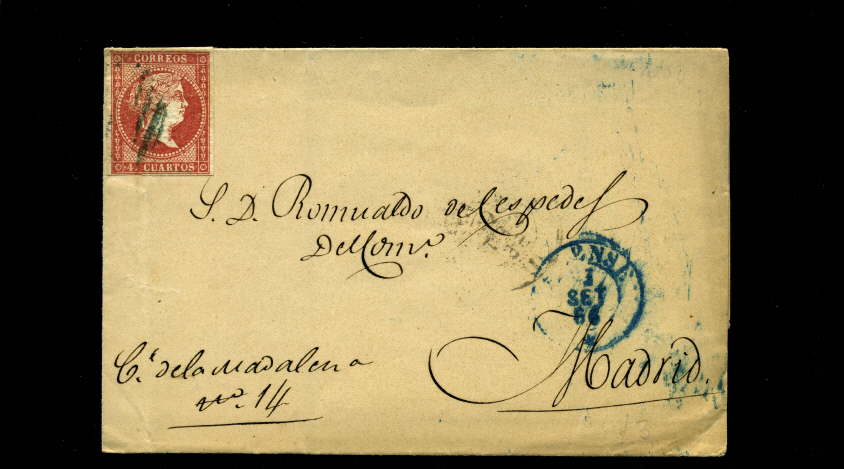 CORREOS
4 CUARTOS
S. D. Romualdo de Cespedes
Del Comº.
ENSE
1
SET
Madrid.
C.ª de la Madalena
Nº. 14